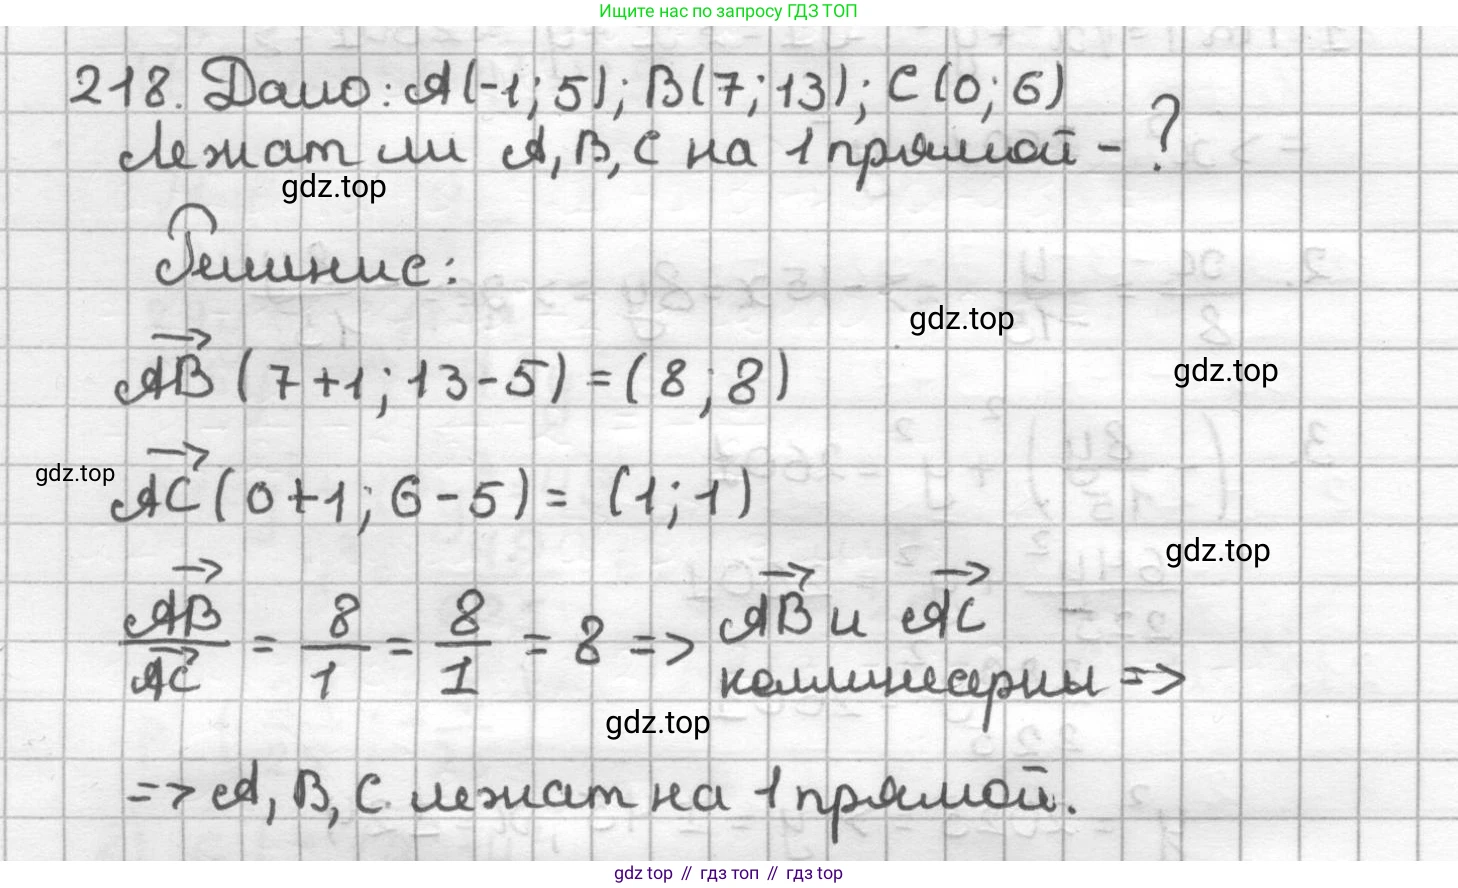 Ищите нас по запросу ГДЗ ТОП
218. Дано: A(-1; 5); B(7; 13); C(0; 6)
Лежат ли A, B, C на 1 прямой - ?
gdz.top
Решение:
gdz.top
AB (7+1; 13-5) = (8; 8)
gdz.top
gdz.top
AC (0+1; 6-5) = (1; 1)
gdz.top
AB/AC = 8/1 = 8/1 = 8 => AB и AC
коллинеарны =>
gdz.top
=> A, B, C лежат на 1 прямой.
gdz.top // гдз топ // гдз top